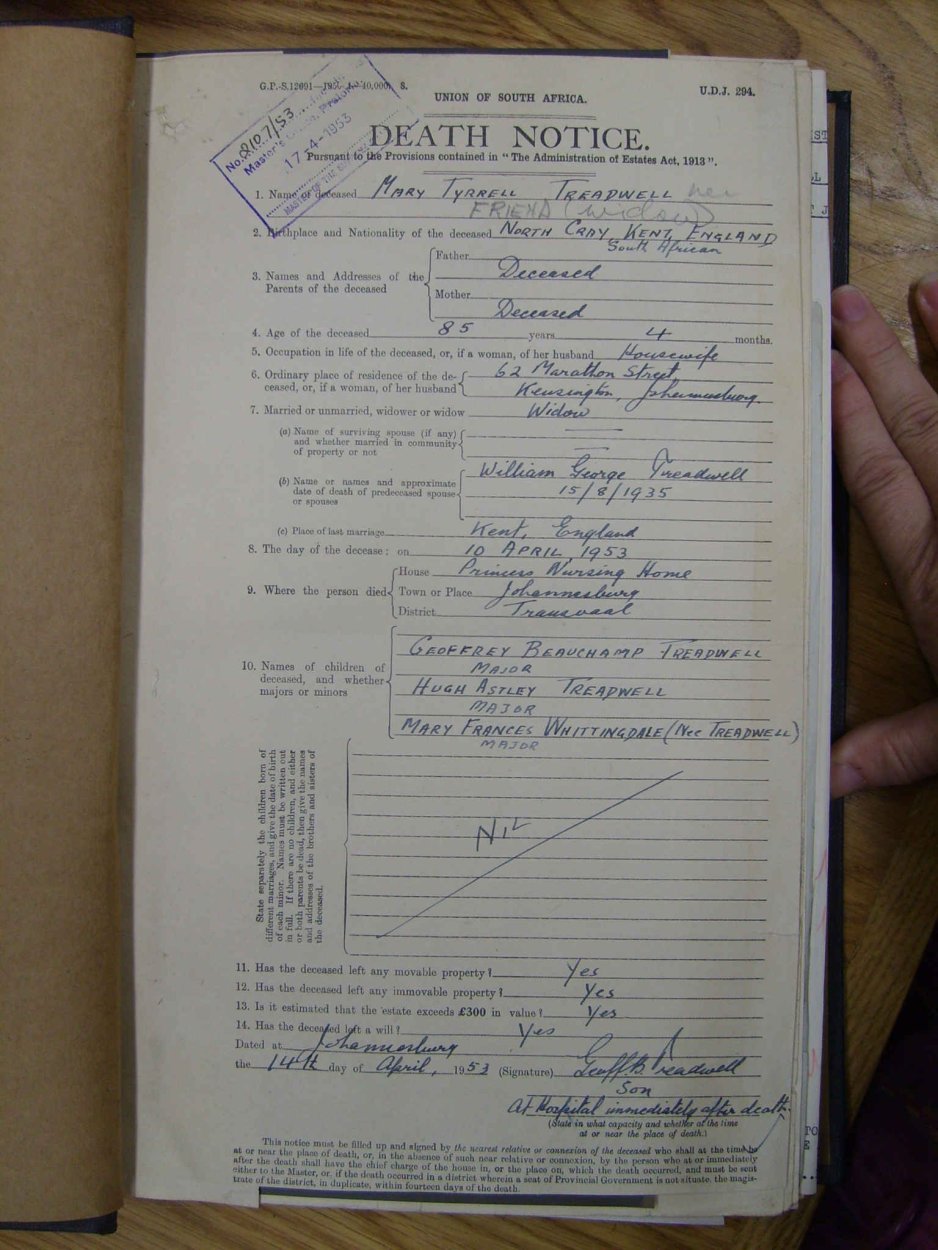 G.P.-S.12091—1950- 1- 40,000. S.
UNION OF SOUTH AFRICA.
U.D.J. 294.
No. 2107/53
Master's
17-4-1953
MASTER OF THE
DEATH NOTICE.
Pursuant to the Provisions contained in "The Administration of Estates Act, 1913".
1. Name of deceased MARY TYRRELL TREADWELL nee
FRIEND (Widow)
2. Birthplace and Nationality of the deceased NORTH CRAY KENT, ENGLAND
South African
3. Names and Addresses of the Parents of the deceased
Father
Deceased
Mother
Deceased
4. Age of the deceased 85 years 4 months.
5. Occupation in life of the deceased, or, if a woman, of her husband Housewife
6. Ordinary place of residence of the de- 62 Marathon Street,
ceased, or, if a woman, of her husband Kensington, Johannesburg.
7. Married or unmarried, widower or widow Widow
(a) Name of surviving spouse (if any)
and whether married in community
of property or not
(b) Name or names and approximate William George Treadwell
date of death of predeceased spouse 15/8/1935
or spouses
(c) Place of last marriage Kent, England
8. The day of the decease: on 10 APRIL, 1953
9. Where the person died
House Princess Nursing Home
Town or Place Johannesburg
District Transvaal
10. Names of children of
deceased, and whether
majors or minors
GEOFFREY BEAUCHAMP TREADWELL
MAJOR
HUGH ASTLEY TREADWELL
MAJOR
MARY FRANCES WHITTINGDALE (Nee TREADWELL)
MAJOR
State separately the children born of
different marriages, and give the date of birth
of each minor. Names must be written out
in full. If there are no children, and either
or both parents be dead, then give the names
and addresses of the brothers and sisters of
the deceased.
NIL
11. Has the deceased left any movable property? Yes
12. Has the deceased left any immovable property? Yes
13. Is it estimated that the estate exceeds £300 in value? Yes
14. Has the deceased left a will? Yes
Dated at Johannesburg
the 14th day of April, 1953 (Signature) Geoff. B. Treadwell
Son
At Hospital immediately after death.
(State in what capacity and whether at the time
at or near the place of death.)
This notice must be filled up and signed by the nearest relative or connexion of the deceased who shall at the time be
at or near the place of death, or, in the absence of such near relative or connexion, by the person who at or immediately
after the death shall have the chief charge of the house in, or the place on, which the death occurred, and must be sent
either to the Master, or, if the death occurred in a district wherein a seat of Provincial Government is not situate, the magis-
trate of the district, in duplicate, within fourteen days of the death.